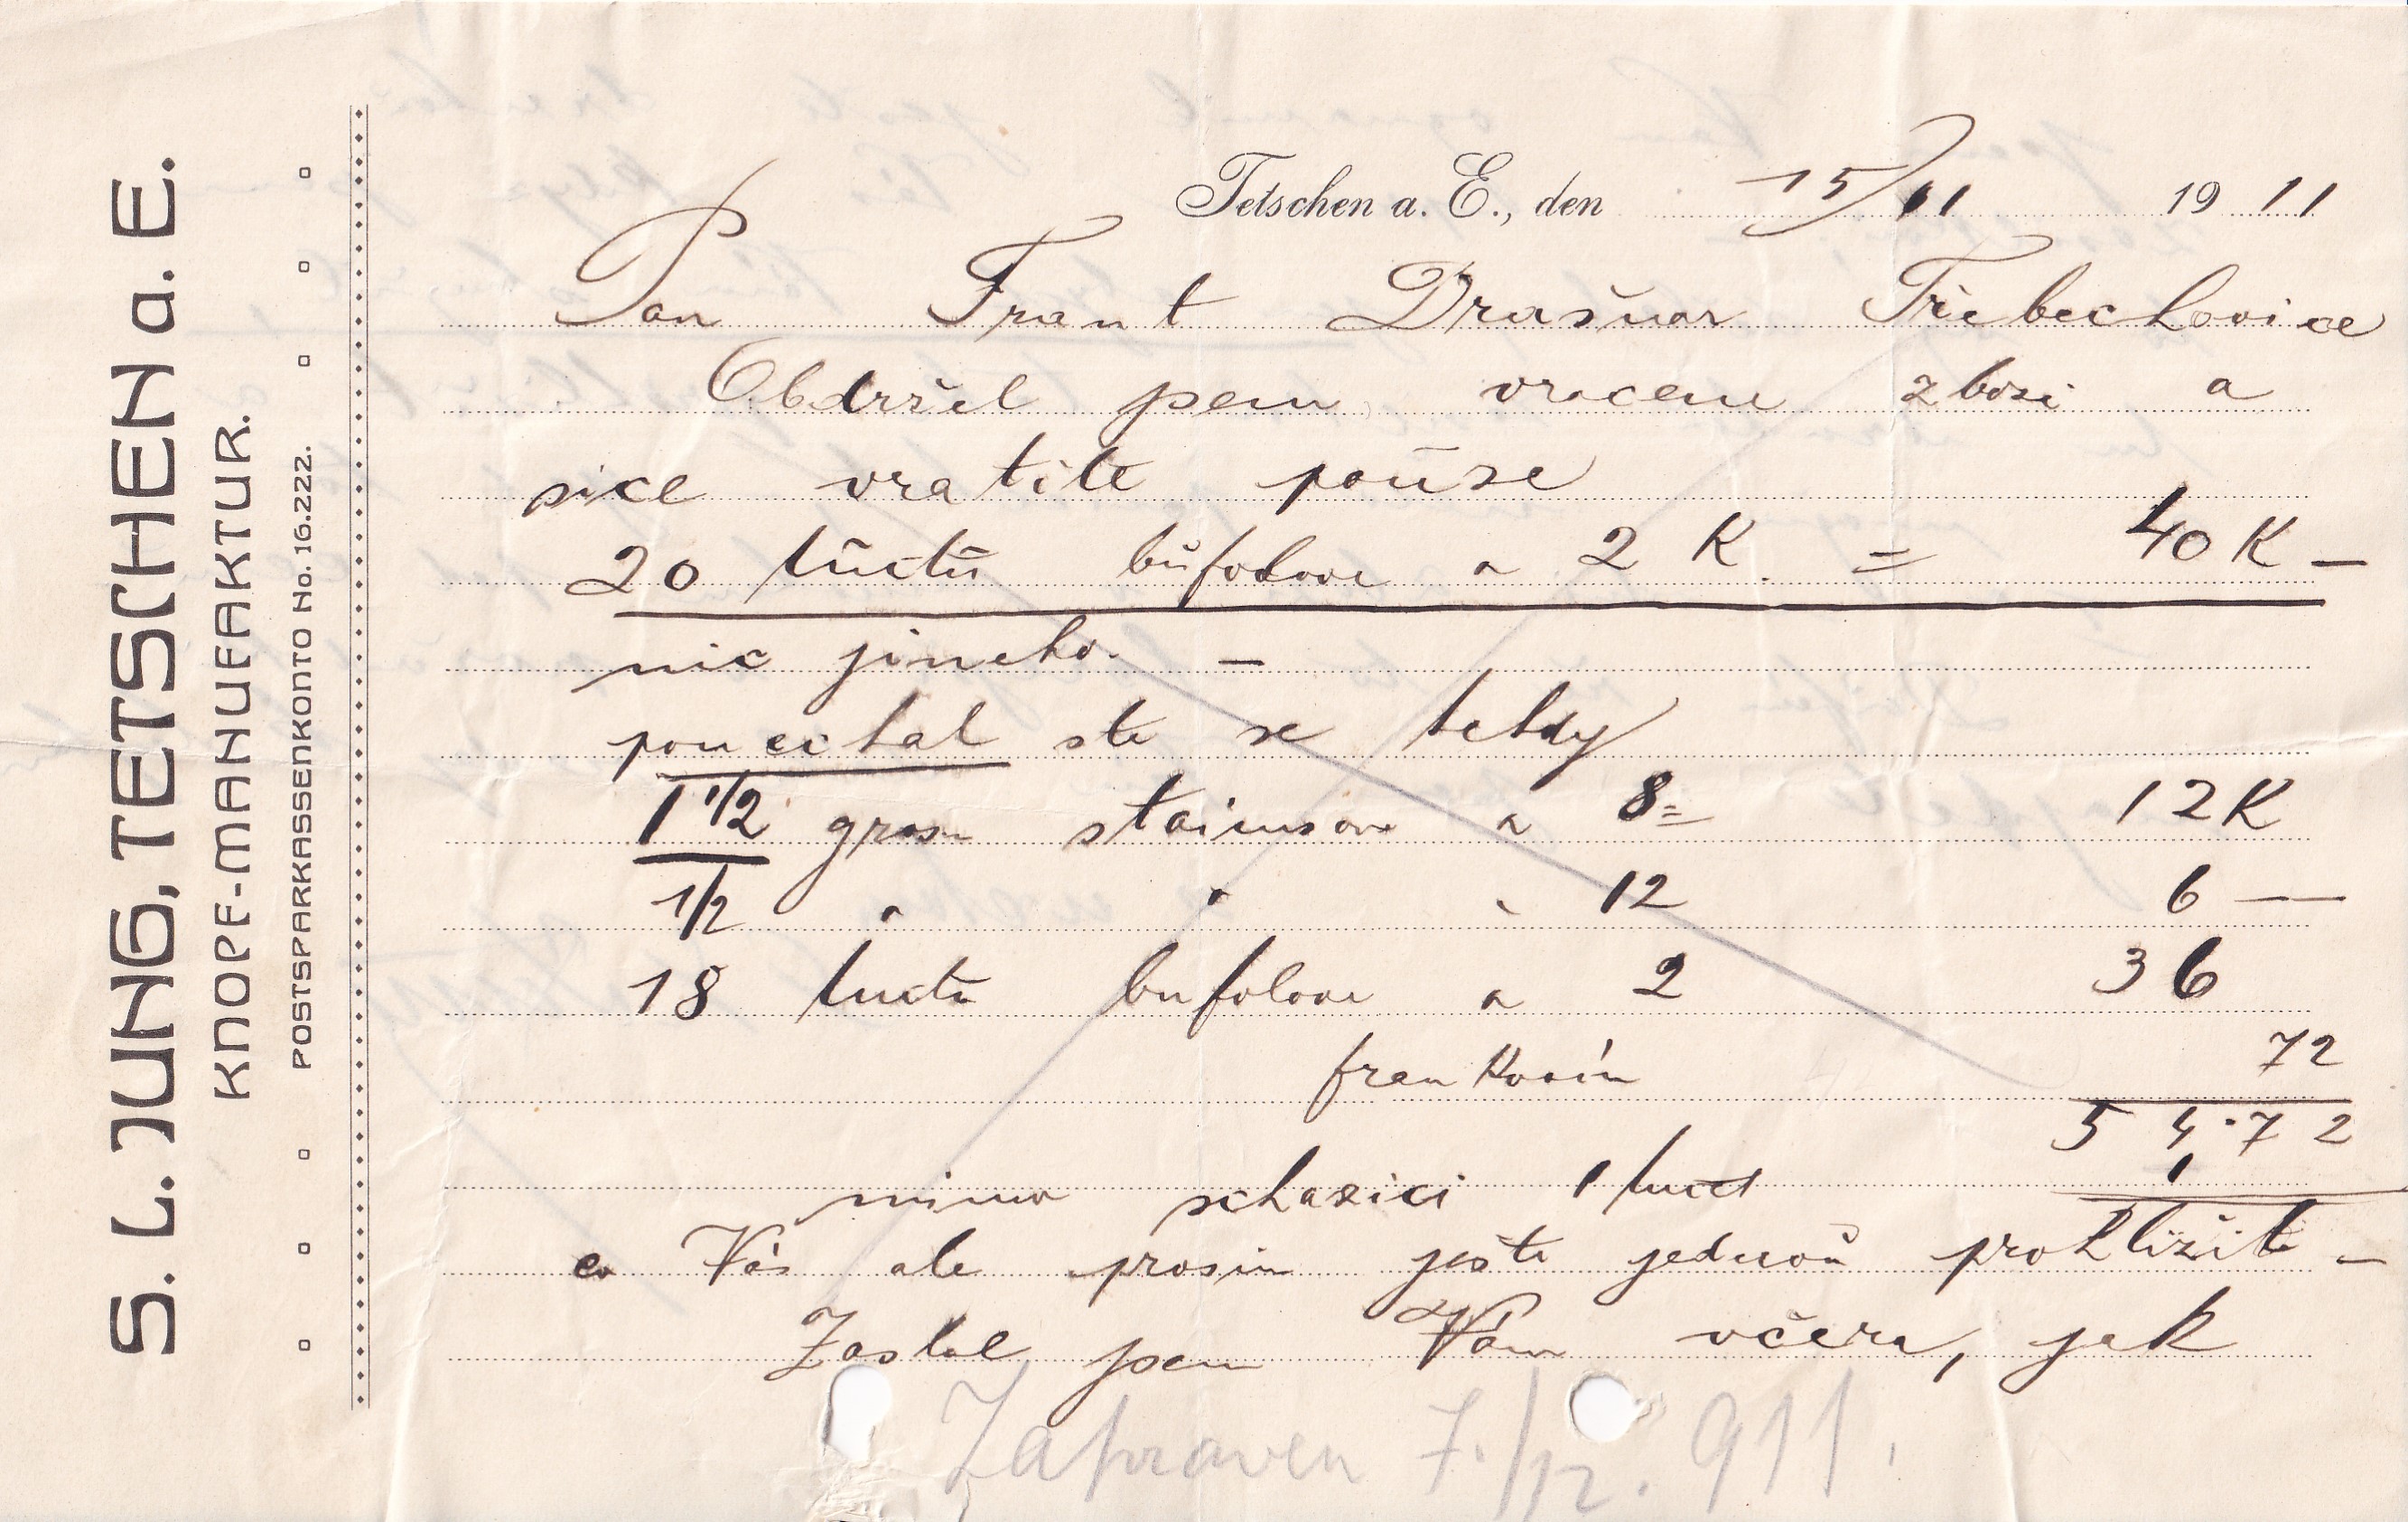 S. L. JUNG, TETSCHEN a. E.
KNOPF-MANUFAKTUR.
POSTSPARKASSENKONTO No. 16.222.
Tetschen a. E., den 15/11 1911
Pan Frant Drašnar Třebechovice
Obdržel jsem vracene zbozi a
sice vratite pouze
20 tuctu bufolove a 2 K. = 40 K –
nic jineho. –
ponechal ste se tehdy
1 1/2 gros a 8= 12 K
1/2 " " " 12 6 —
18 tuctu bufolove a 2 36
frankovín 72
54.72
mimo schazici 1 tuct 1
co Vás ale prosim ješte jednou prohližite –
Zaslal jsem Vám včera, jak
Zapraven 7./12. 911.